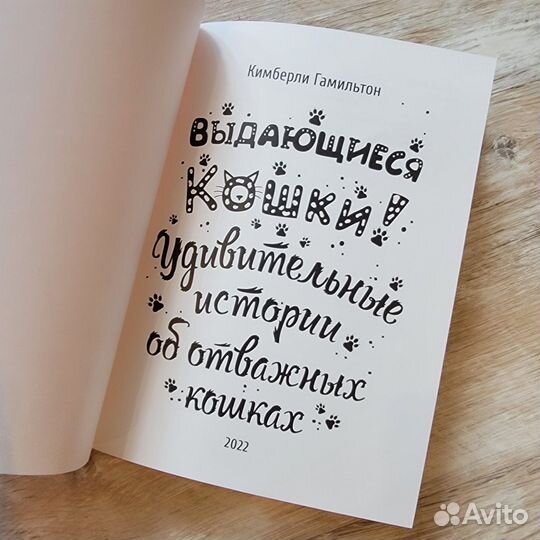 Кимберли Гамильтон
Выдающиеся
кошки!
Удивительные
истории
об отважных
кошках
2022
Avito